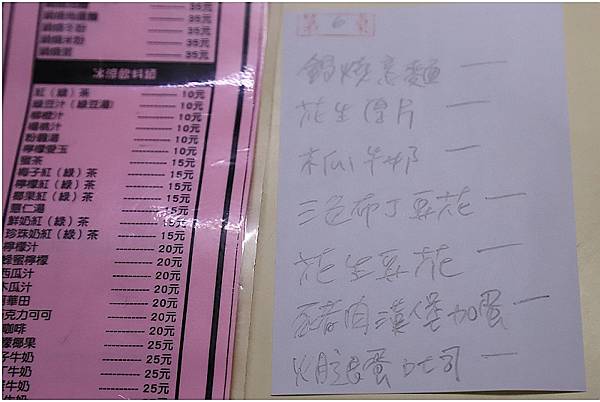 鍋燒意麵 35元
35元
35元
35元
35元
冰涼飲料類
紅（綠）茶 10元
綠豆汁（綠豆湯） 10元
檸檬汁 10元
楊桃汁 10元
粉圓湯 10元
檸檬愛玉 10元
蜜茶 15元
梅子紅（綠）茶 15元
檸檬紅（綠）茶 15元
椰果紅（綠）茶 15元
薏仁湯 15元
鮮奶紅（綠）茶 15元
珍珠奶紅（綠）茶 15元
檸檬汁 20元
蜂蜜檸檬 20元
西瓜汁 20元
木瓜汁 20元
阿華田 20元
巧克力可可 20元
咖啡 20元
檬椰果 25元
子牛奶 25元
丁牛奶 25元
牛奶 25元
第 6 桌
鍋燒意麵 一
花生厚片 一
木瓜牛奶 一
三色布丁豆花 一
花生豆花 一
豬肉漢堡加蛋 一
火腿蛋吐司 一